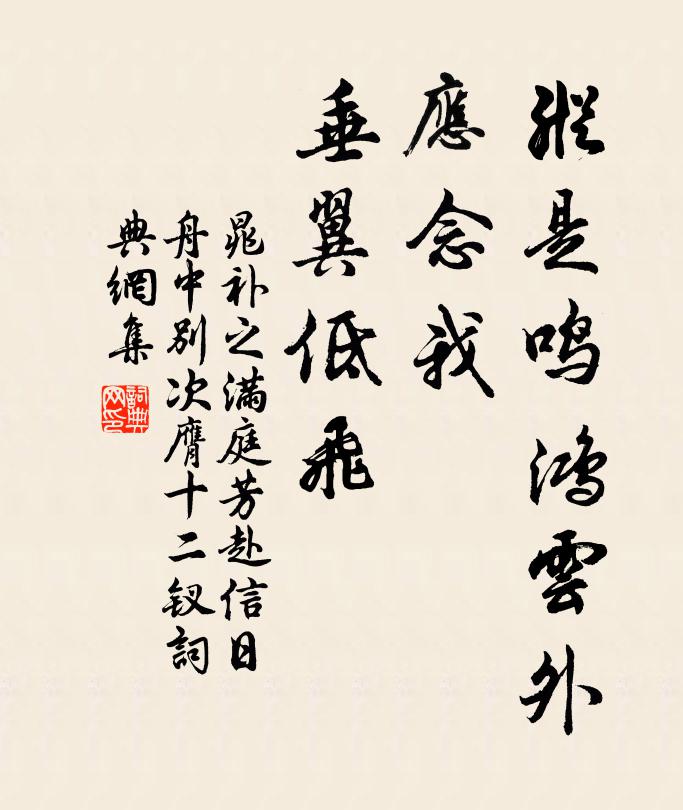 縱是鳴鴻雲外
應念我
垂翼低飛
晁补之满庭芳赴信日
舟中别次膺十二钗詞
典網集
詞典网印